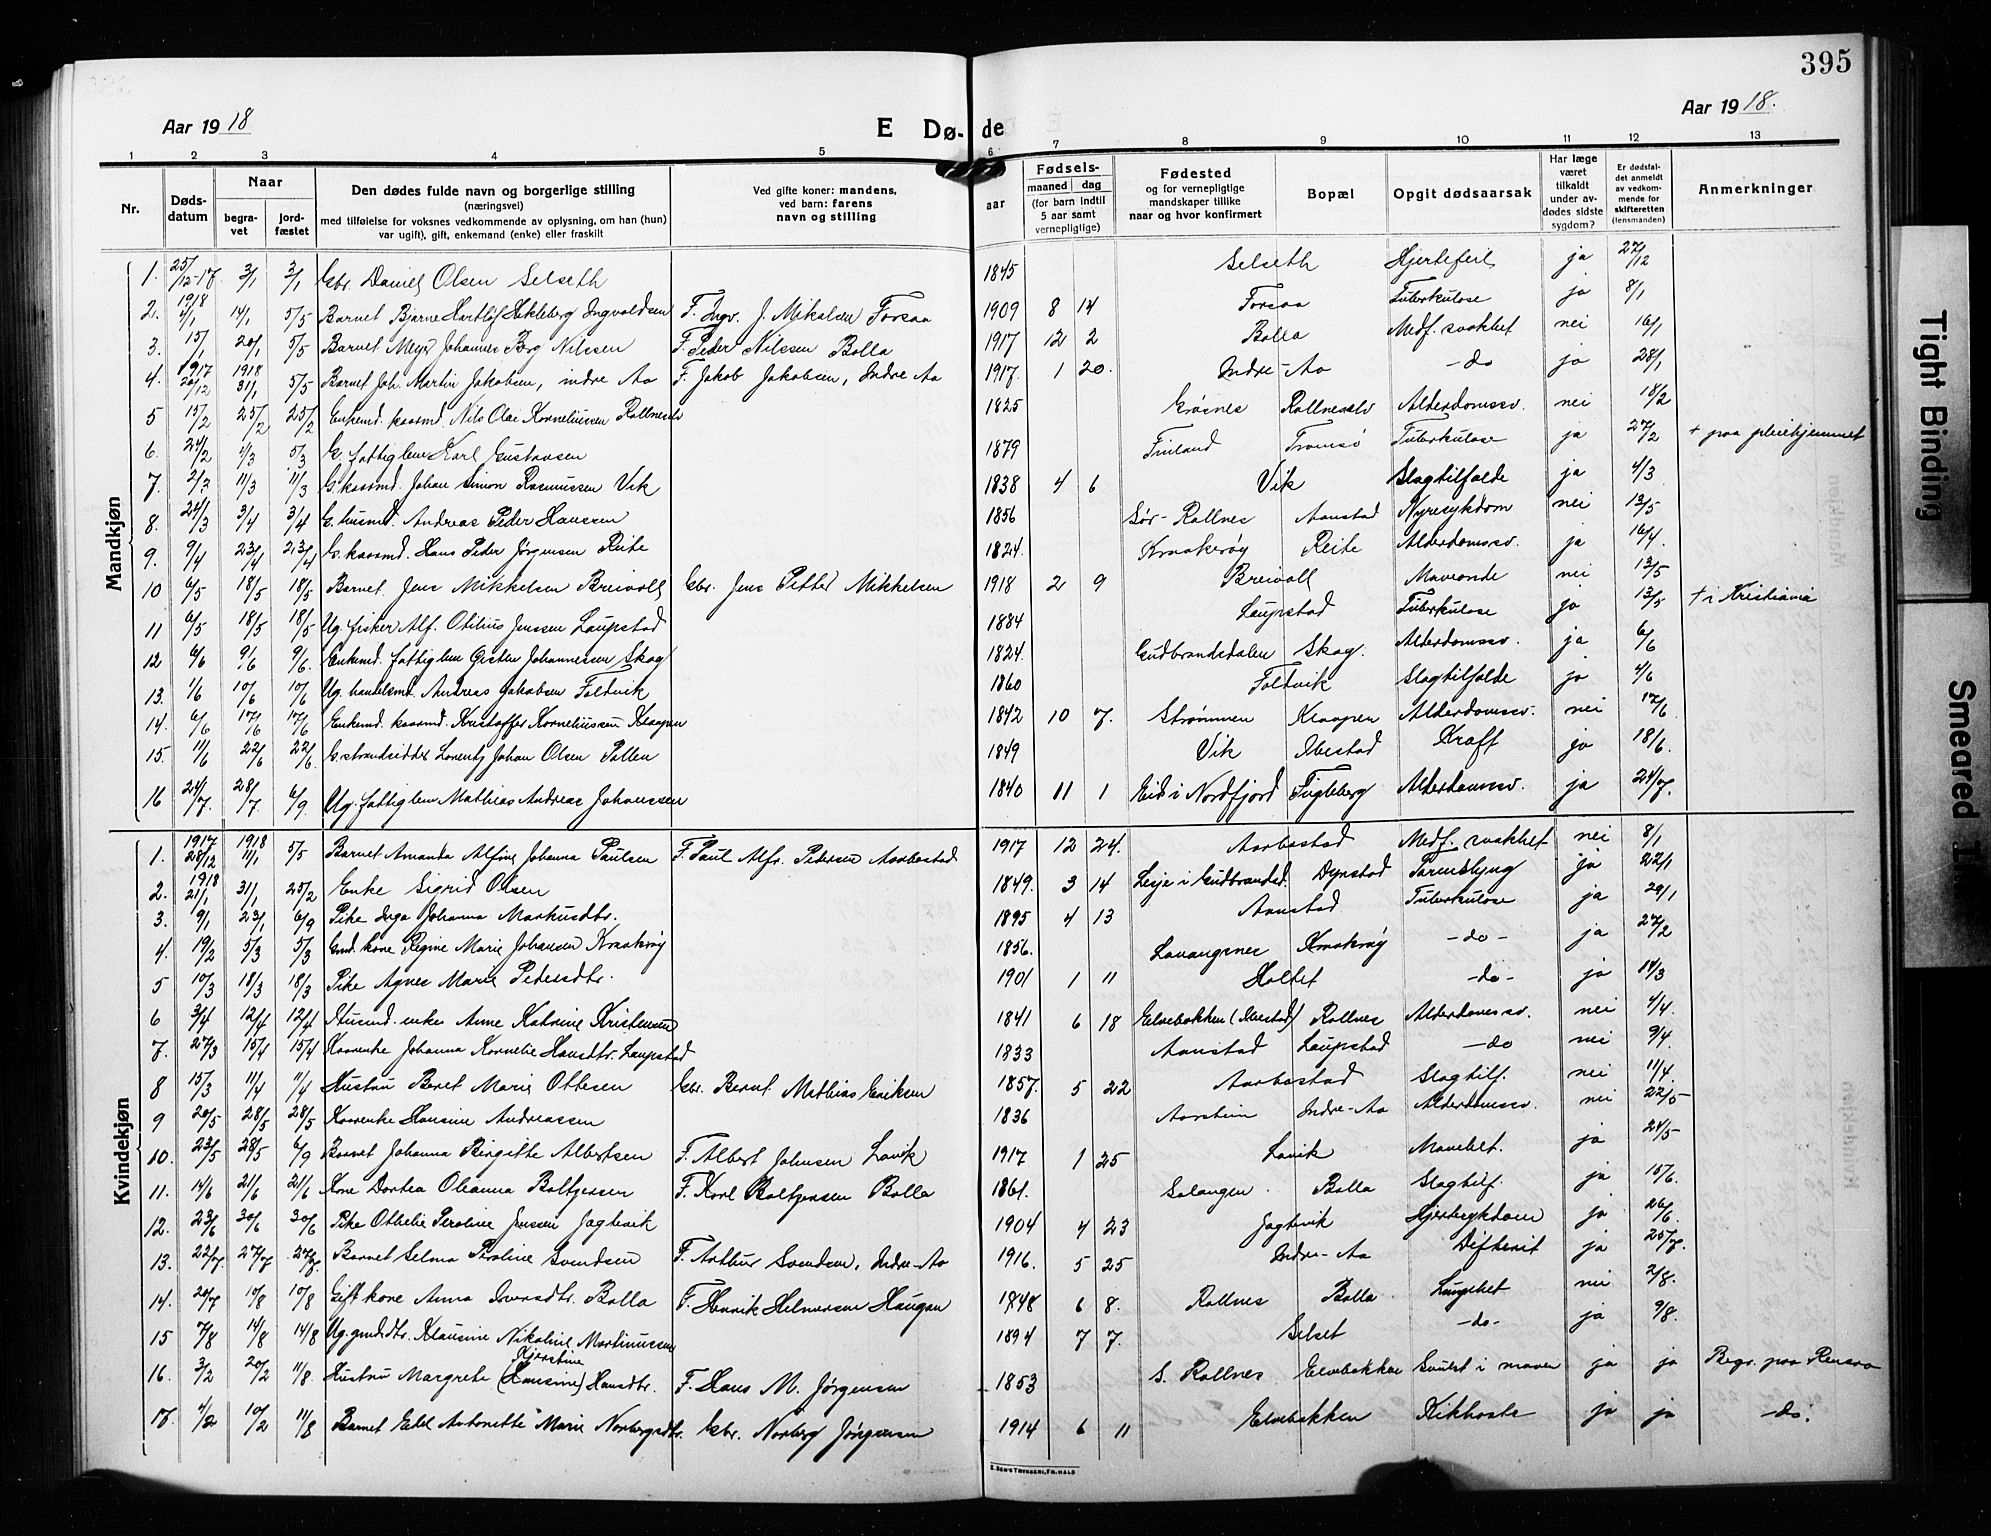 395
Aar 1918
E Dø-
de
Aar 1918.
1 2 3 4 5 6 7 8 9 10 11 12 13
Nr.
Døds-datum
Naar
begra-vet
jord-fæstet
Den dødes fulde navn og borgerlige stilling
(næringsvei)
med tilføielse for voksnes vedkommende av oplysning, om han (hun)
var ugift), gift, enkemand (enke) eller fraskilt
Ved gifte koner: mandens,
ved barn: farens
navn og stilling
aar
Fødsels-
maaned dag
(for barn indtil
5 aar samt
vernepligtige)
Fødested
og for vernepligtige
mandskaper tillike
naar og hvor konfirmert
Bopæl
Opgit dødsaarsak
Har læge
været
tilkaldt
under av-
dødes sidste
sygdom?
Er dødsfal-
det anmeldt
av vedkom-
mende for
skifteretten
(lensmanden)
Anmerkninger
Mandkjøn
1. 25/12-17 3/1 3/1 Gbr. Daniel Olsen Selseth 1845 Selseth Hjertefeil ja 27/12
2. 1918 4/1 14/1 5/5 Barnet Bjarne Hartløf Hekleberg Ingvaldsen F. Ingv. J. Mikalsen Forsaa 1909 8 14 Forsaa Tuberkulose ja 8/1
3. 15/1 20/1 5/5 Barnet Meyer Johannes Borg Nilssen F. Peder Nilssen Bolla 1917 12 2 Bolla Medf. svakhet nei 16/1
4. 1917 20/12 1918 31/1 5/5 Barnet Joh. Martin Jakobsen, indre Aa F. Jakob Jakobsen, Indre Aa 1917. 1 20. Indre-Aa -do ja 28/1
5 15/2 25/2 25/2 Enkemd. kaarmd. Nils Olai Korneliussen Rollneselv 1825 Grøsnes Rollneselv Alderdomssv. nei 18/2
6. 24/2 1/3 5/3 G. fattiglem Karl Gustavsen 1879 Finland Tromsø Tuberkulose ja 27/2 + paa pleiehjemmet
7. 2/3 11/3 11/3 G. kaarmd. Johan Simon Rasmussen Vik 1838 4 6 Vik Slagtilfælde ja 4/3
8. 24/3 3/4 3/4 G. husmd. Andreas Peder Hanssen 1856 Sør-Rollnes Aanstad Nyresykdom nei 13/5
9. 9/4 23/4 23/4 G. kaarmd. Hans Peder Jørgensen Reite 1824. Kraakerøy Reite Alderdomssv. ja 16/4.
10 6/5 18/5 18/5 Barnet Jens Mikkelsen Breivoll Gbr. Jens Petter Mikkelsen 1918 2 9 Breivoll Maveonde nei 13/5
11 6/5 18/5 18/5 Ug. fisker Alf. Otilius Jenssen Laupstad 1884 Laupstad Tuberkulose ja 13/5 + i Kristiania
12 6/6 9/6 9/6. Enkemd. fattiglem Gisten Johannessen Skog 1824. Gudbrandsdalen Skog. Alderdomssv. ja 6/6
13. 1/6 10/6 10/6 Ug. handelsmd. Andreas Jakobsen Foldvik 1860 Foldvik Slagtilfælde ja 4/6
14. 6/6 17/6 17/6 Enkemd. kaarmd. Kristoffer Korneliussen Kraapen 1842 10 7. Strømmen Kraapen Alderdomssv. nei 17/6.
15. 11/6 22/6 22/6. G. strandsidder Lorentz Johan Olsen Pollen 1849 Vik Ibestad Kræft ja 18/6.
16 24/7. 28/7 6/9 Ug. fattiglem Mathias Andreas Johanssen 1840 11 1 Eid i Nordfjord Fugleberg Alderdomssv. ja 24/7.
Kvindekjøn
1. 1917 28/12 1918 11/1 5/5 Barnet Amanda Alfine Johanna Paulsen F. Paul Alfr. Pedersen Aarbostad 1917 12 24. Aarbostad Medf. svakhet nei 8/1
2. 1918 21/1 31/1 25/2 Enke Sigrid Olsen 1849. 3 14 Lesje i Gudbrandsd. Dynstad Tarmslyng ja 22/1
3. 9/1 23/1 6/9 Pike Inga Johanna Markusdtr. 1895 4 13 Aanstad Tuberkulose ja 29/1
4. 19/2 5/3 5/3 Gmd. kone Regine Marie Johansen Kraakrøy 1856. Lavangsnes Kraakrøy -do- ja 27/2
5 10/3 18/3 18/3 Pike Agnes Marie Pedersdtr. 1901 1 11 Holtet -do- ja 14/3
6 3/4 12/4 12/4 Husmd. enke Anne Katrine Kristensen 1841 6 18 Elvebakken (Ibestad) Rollnes Alderdomssv. nei 4/4.
7. 27/3 15/4 15/4 Kaarenke Johanna Kornelie Hansdtr. Laupstad 1833 Aanstad Laupstad -do nei 9/4.
8 15/3 11/4 11/4 Hustru Beret Marie Ottesen Gbr. Bernt Mathias Eriksen 1857. 5 22 Aarbostad Slagtilf. nei 11/4.
9 20/5 28/5 28/5 Kaarenke Hansine Andreassen 1836 Aarstein Indre-Aa Alderdomssv. nei 22/5
10. 23/5 28/5 6/9 Barnet Johanna Birgitte Albertsen F. Albert Johnsen Lavik 1917 1 25 Lavik Mavebet. ja 24/5
11. 14/6 21/6 21/6 Kone Dortea Olianna Boltzersen F. Karl Boltzersen Bolla 1861. Salangen. Bolla Slagtilf. ja 15/6.
12. 23/6 30/6 30/6 Pike Othelie Peroline Jenssen Jagtvik 1904 4 23 Jagtvik Hjertesykdom ja 26/6.
13. 22/7. 27/7 27/7. Barnet Selma Peroline Svendsen F. Arthur Svendsen, Indre-Aa 1916. 5 25 Indre-Aa Difterit ja 25/7.
14. 20/7 10/8 10/8 Gift kone Anna Iversdtr. Bolla F. Henrik Helmersen Haugan 1848 6 8. Rollnes Bolla Lungebet nei 2/8.
15 7/8 14/8 14/8 Ug. gmd.dtr. Klausine Nikoline Martinussen 1894 7 7. Selset -do- ja 9/8.
16. 3/2 20/2 11/8. Hustru Margrete (Hansine) Kjerstine Hansdtr. F. Hans M. Jørgensen 1853 S. Rollnes Elvebakken Svulst i maven ja ja Begr. paa Rensaa
17. 4/2 10/2 11/8 Barnet Edel Antonette Marie Norbergsdtr. Gbr. Norberg Jørgensen 1914 6 11 Elvebakken Kikhoste ja ja -do.
E. SEM'S TRYKKERI, FR.HALD
Tight Binding
Smeared I